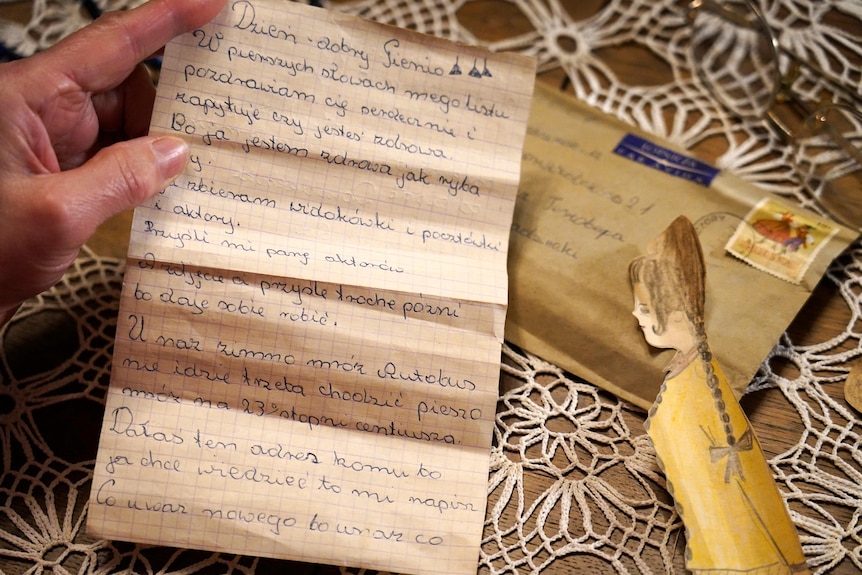 Dzień-dobry Gienio
W pierwszych słowach mego listu
pozdrawiam cię serdecznie i
zapytuję czy jesteś zdrowa.
Bo ja jestem zdrowa jak ryba
zbieram widokówki i pocztówki
i aktory.
Przyśli mi parę aktorów
A zdjęcie ci przyśle trochę pózni
bo daje sobie robić.
U nas zimno mróz Autobus
nie idzie trzeba chodzić pieszo
mróz na 23° stopni centusza.
Dałaś ten adres komu to
ja chcę wiedzieć to mi napisz
Co uwas nowego bo unas co
21